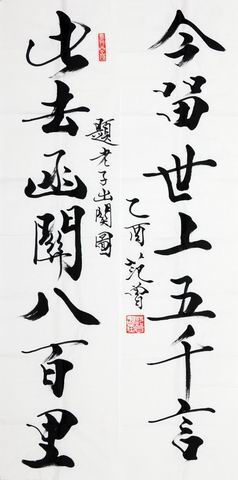 今留世上五千言
乙酉 范曾
出去函關八百里
題老子出關圖